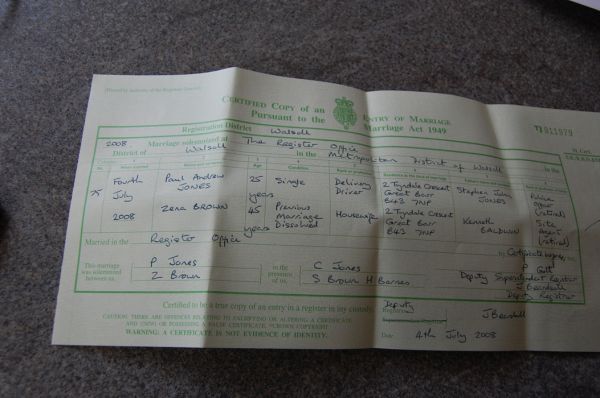 CERTIFIED COPY of an ENTRY OF MARRIAGE
Pursuant to the Marriage Act 1949
Registration District Walsall
2008. Marriage solemnized at The Register Office
District of Walsall in the Metropolitan District of Walsall
Fourth July 2008
Paul Andrew JONES
25 years
Single
Delivery Driver
2 Tyndale Crescent Great Barr B43 7NP
Stephen John JONES
Police Officer (retired)
Zena BROWN
45 years
Previous Marriage Dissolved
Housewife
2 Tyndale Crescent Great Barr B43 7NP
Kenneth BALDWIN
Site Agent (retired)
Married in the Register Office by Certificate
This marriage was solemnized between us, P Jones Z Brown
in the presence of us, C Jones S Brown H Barnes
Deputy Superintendent Registrar
Deputy Registrar
Certified to be a true copy of an entry in a register in my custody
Deputy
CAUTION: THERE ARE OFFENCES RELATING TO FALSIFYING OR ALTERING A CERTIFICATE
AND USING OR POSSESSING A FALSE CERTIFICATE. ©CROWN COPYRIGHT
WARNING: A CERTIFICATE IS NOT EVIDENCE OF IDENTITY.
Date 4th July 2008